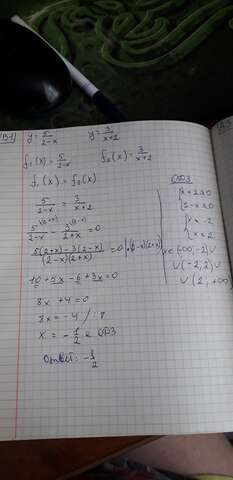 B-1 y = 5/(2-x) y = 3/(x+2)
f₁(x) = 5/(2-x) f₂(x) = 3/(x+2)
f₁(x) = f₂(x)
5/(2-x) = 3/(x+2)
5/(2-x) - 3/(2+x) = 0
(5(2+x) - 3(2-x))/((2-x)(2+x)) = 0 | · (2-x)(2+x)
10 + 5x - 6 + 3x = 0
8x + 4 = 0
8x = -4 / : 8
x = -1/2 ∈ ОДЗ
Ответ: -1/2
ОДЗ
x + 2 ≠ 0
2 - x ≠ 0
x ≠ -2
x ≠ 2
x ∈ (-∞; -2) ∪
∪ (-2; 2) ∪
∪ (2; +∞)